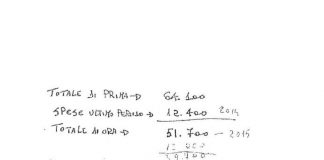 TOTALE DI PRIMA → 64.100
SPESE ULTIMO PERIODO → 12.400 2014
TOTALE DI ORA → 51.700 — 2015
12.000
39.700